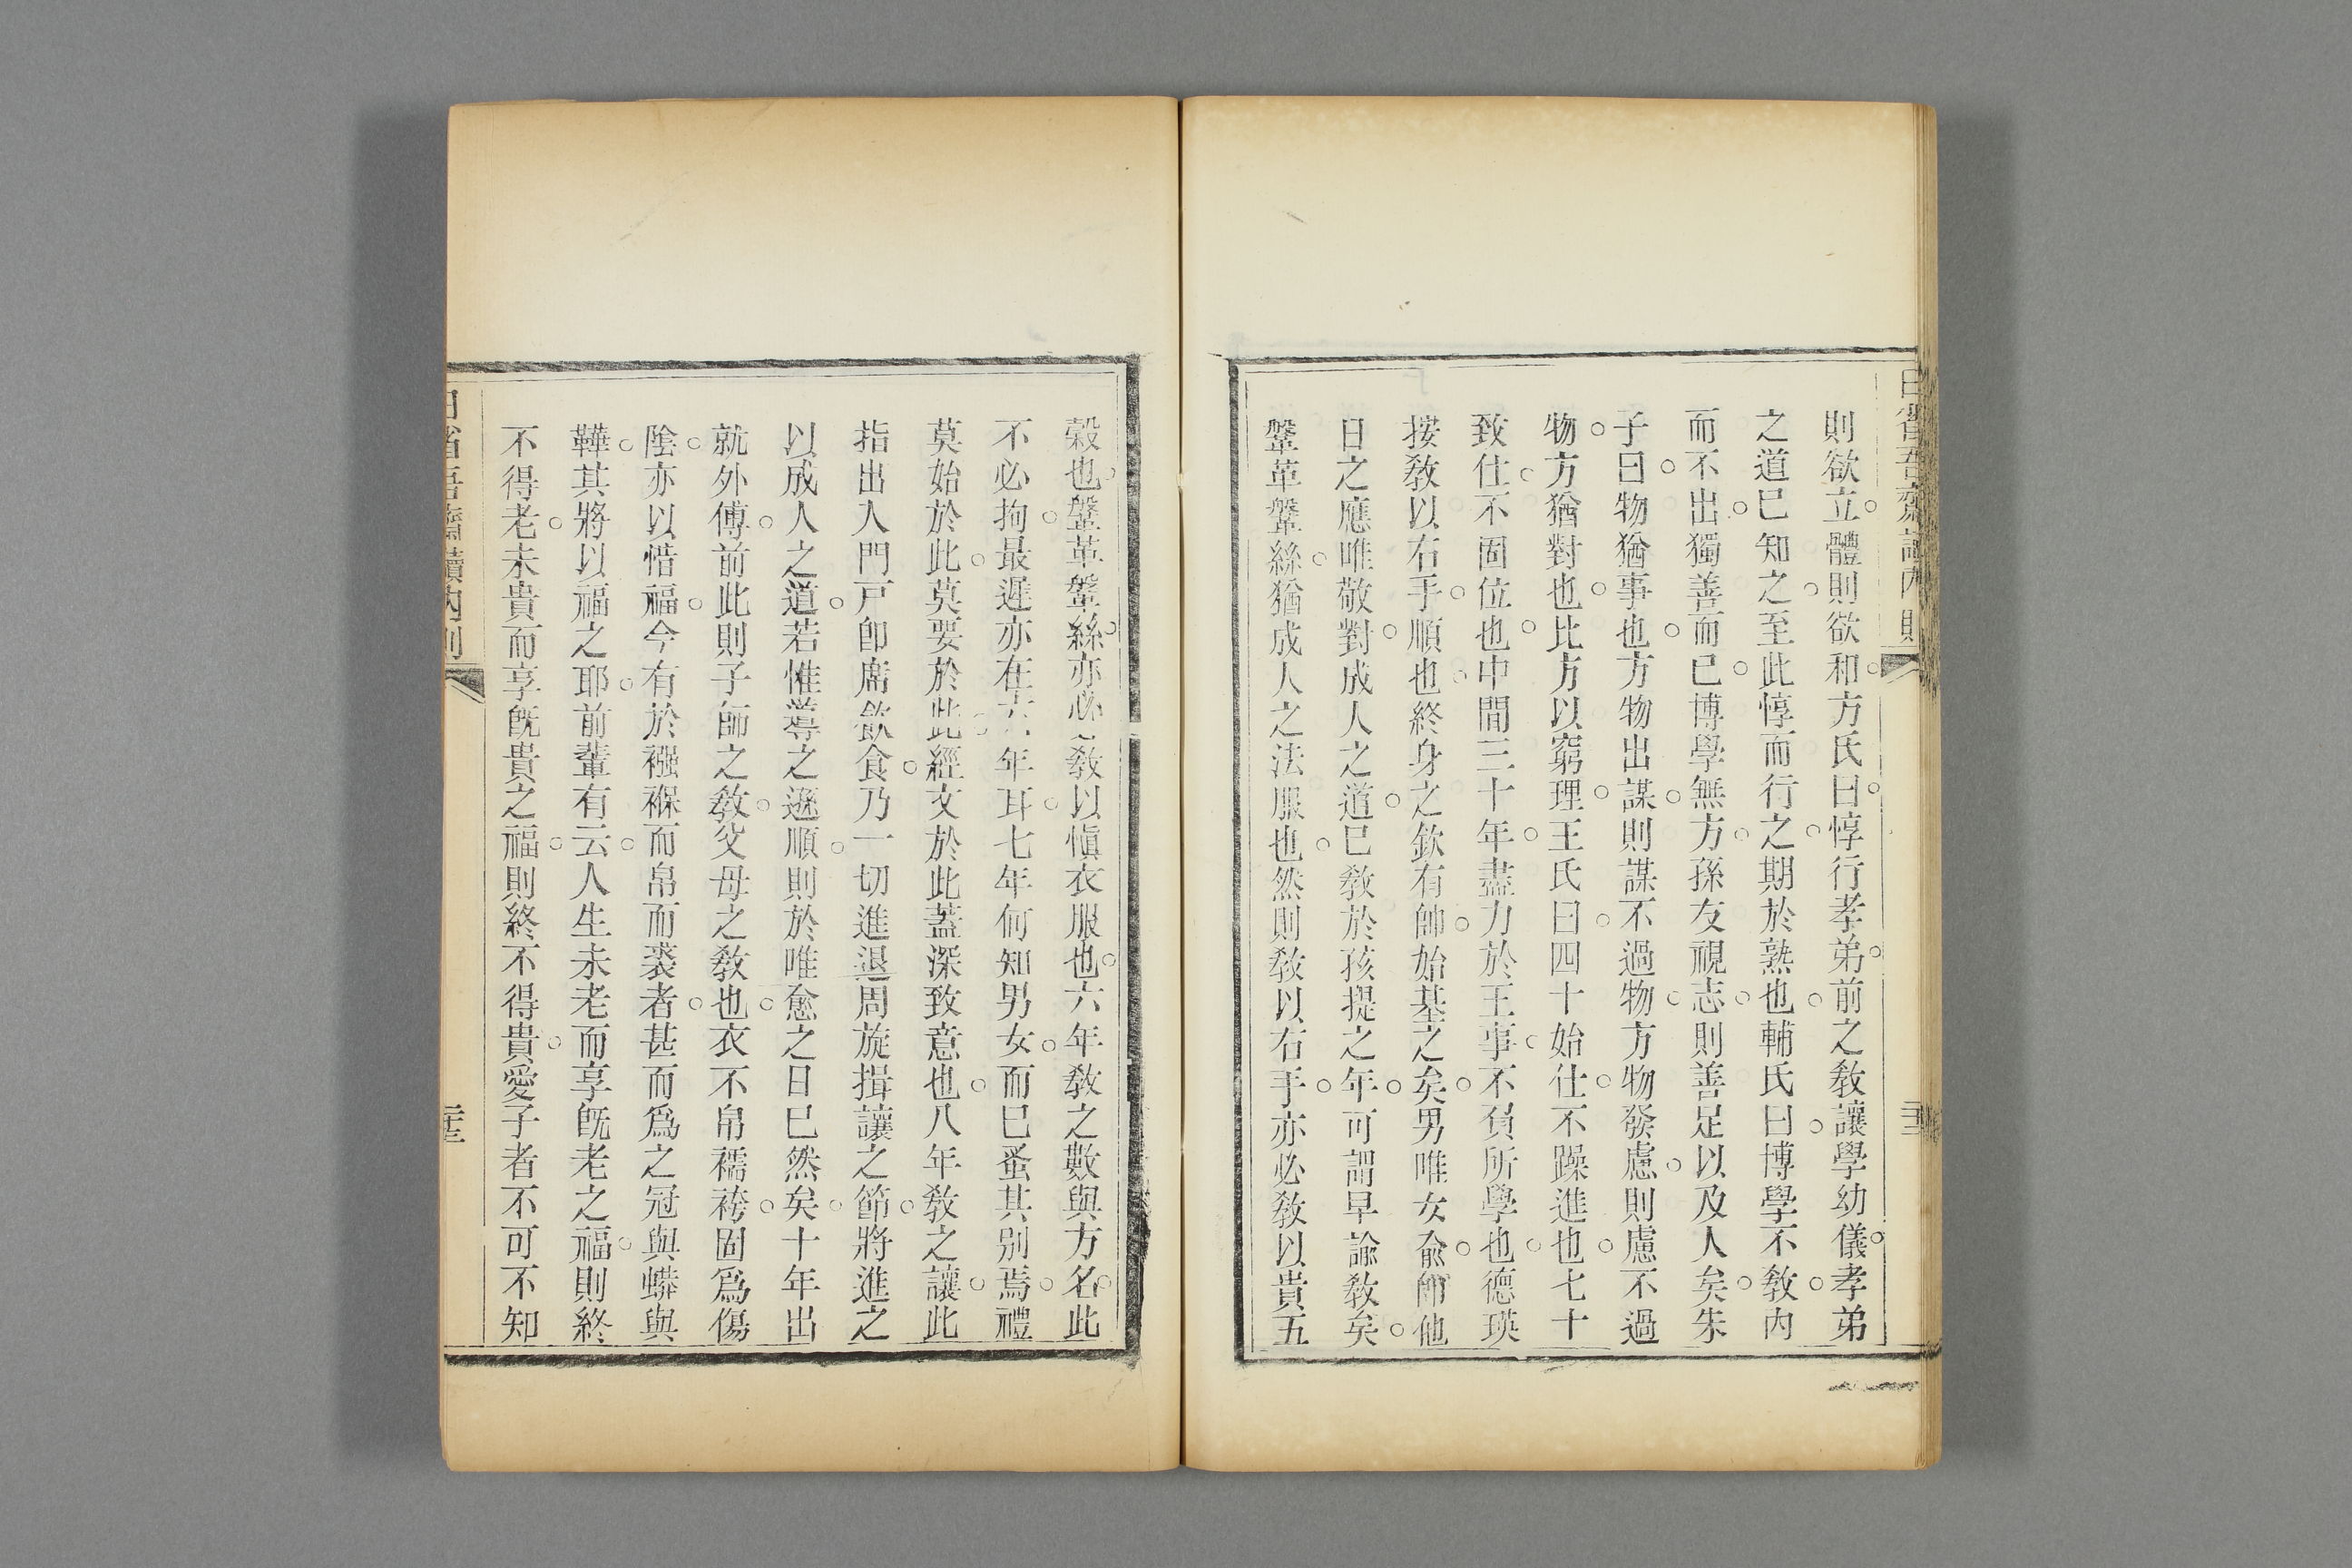 則欲立體則欲和方氏曰惇行孝弟前之敎讓學幼儀孝弟
之道已知之至此惇而行之期於熟也輔氏曰博學不敎內
而不出獨善而已博學無方孫友視志則善足以及人矣朱
子曰物猶事也方物出謀則謀不過物方物發慮則慮不過
物方猶對也比方以窮理王氏曰四十始仕不躁進也七十
致仕不固位也中間三十年盡力於王事不負所學也德瑛
按敎以右手順也終身之欽有帥始基之矣男唯女兪師他
日之應唯敬對成人之道已敎於孩提之年可謂早諭敎矣
鞶革鞶絲猶成人之法服也然則敎以右手亦必敎以貴五
穀也鞶革鞶絲亦必敎以愼衣服也六年敎之數與方名此
不必拘最遲亦在六年耳七年何知男女而已蚤其別焉禮
莫始於此莫要於此經文於此蓋深致意也八年敎之讓此
指出入門戸卽席飮食乃一切進退周旋揖讓之節將進之
以成人之道若惟導之遜順則於唯愈之日已然矣十年出
就外傅前此則子師之敎父母之敎也衣不帛襦袴固爲傷
陰亦以惜福今有於襁褓而帛而裘者甚而爲之冠與蟒與
鞾其將以福之耶前輩有云人生未老而享旣老之福則終
不得老未貴而享旣貴之福則終不得貴愛子者不可不知